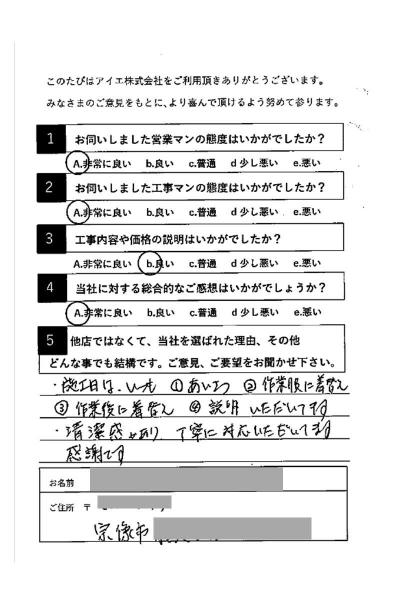 このたびはアイエ株式会社をご利用頂きありがとうございます。
みなさまのご意見をもとに、より喜んで頂けるよう努めて参ります。
1 お伺いしました営業マンの態度はいかがでしたか？
A.非常に良い b.良い c.普通 d 少し悪い e.悪い
2 お伺いしました工事マンの態度はいかがでしたか？
A.非常に良い b.良い c.普通 d 少し悪い e.悪い
3 工事内容や価格の説明はいかがでしたか？
A.非常に良い b.良い c.普通 d 少し悪い e.悪い
4 当社に対する総合的なご感想はいかがでしょうか？
A.非常に良い b.良い c.普通 d 少し悪い e.悪い
5 他店ではなくて、当社を選ばれた理由、その他
どんな事でも結構です。ご意見、ご要望をお聞かせ下さい。
・施工日は、いつも ①あいさつ ②作業服に着替え
③作業後に着替え ④説明 いただいてます
・清潔感があり、丁寧に対応いただいてます
感謝です
お名前
ご住所 〒
宗像市